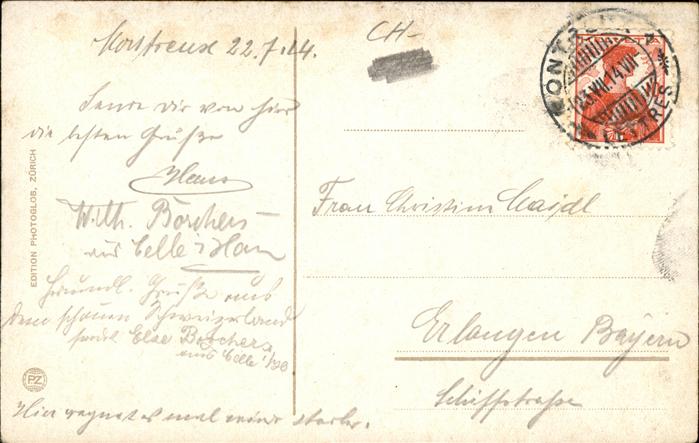 Montreux 22.7.14.
CH-
Sende Dir von hier
die besten Grüße
Hans
Wilh. Borchers
aus Celle i/Han
Freundl. Grüße aus
dem schönen Schweizerland
sendet Else Borchers
aus Celle
Hier regnet es mal wieder starker.
Frau Christine
Erlangen Bayern
Schiffstraße
MONTREUX
23.VII.14.VII-
LETTRES
EDITION PHOTOGLOB, ZÜRICH
PZ